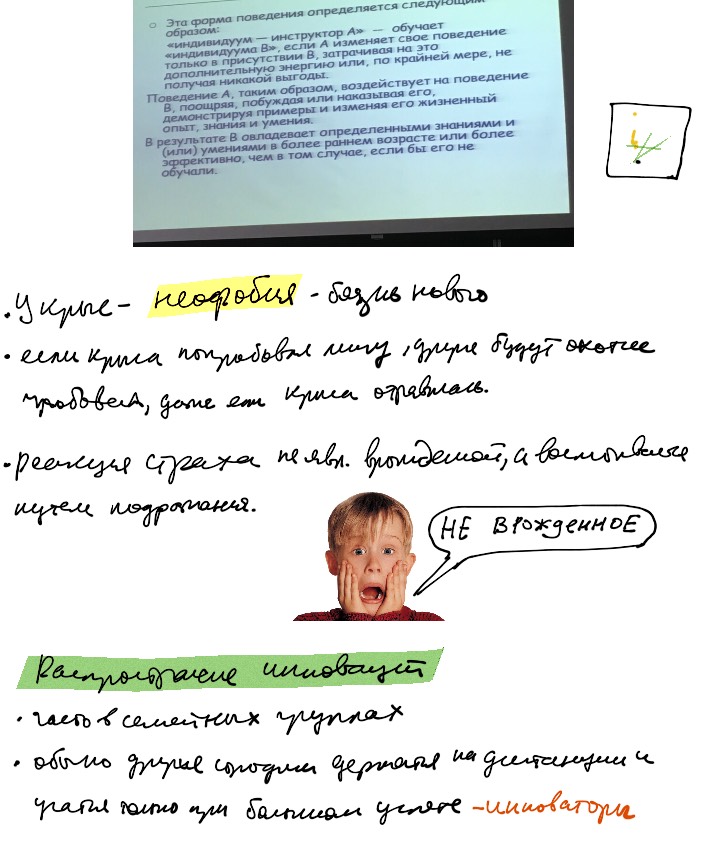 ○ Эта форма поведения определяется следующим
образом:
«индивидуум — инструктор А» — обучает
«индивидуума В», если А изменяет свое поведение
только в присутствии В, затрачивая на это
дополнительную энергию или, по крайней мере, не
получая никакой выгоды.
Поведение А, таким образом, воздействует на поведение
В, поощряя, побуждая или наказывая его,
демонстрируя примеры и изменяя его жизненный
опыт, знания и умения.
В результате В овладевает определенными знаниями и
(или) умениями в более раннем возрасте или более
эффективно, чем в том случае, если бы его не
обучали.
• У крыс – неофобия – боязнь нового
• если крыса попробовала пищу, другие будут охотнее
пробовать, даже если крыса отравилась.
• Реакция страха не явл. врожденной, а
путем подражания.
НЕ ВРОЖДЕННОЕ
Распространение инноваций
• часто в семейных группах
• обычно другие сородичи держатся на дистанции и
только при большом успехе – инноваторы